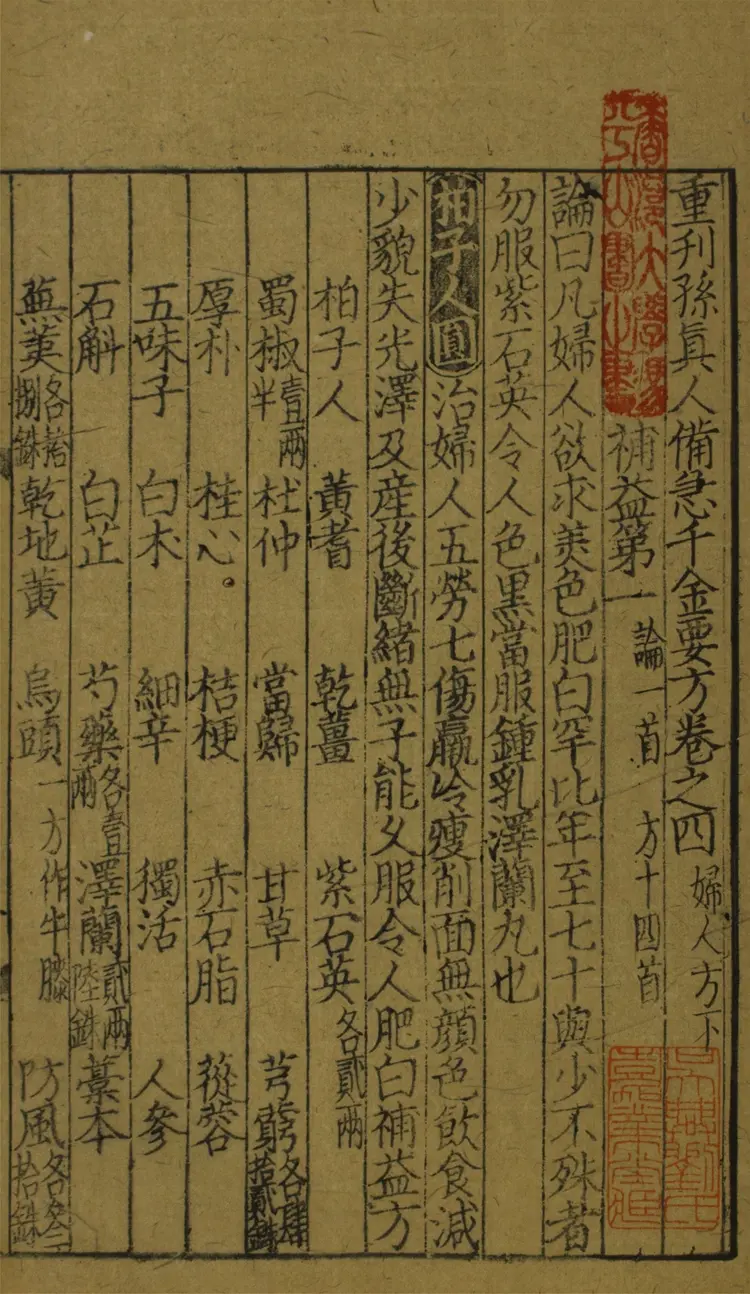 重刊孫眞人備急千金要方卷之四 婦人方下
補益第一 論一首 方十四首
論曰凡婦人欲求美色肥白罕比年至七十與少不殊者
勿服紫石英令人色黑當服鍾乳澤蘭丸也
柏子人圓 治婦人五勞七傷羸冷瘦削面無顔色飲食減
少貌失光澤及産後斷緒無子能久服令人肥白補益方
柏子人 黃耆 乾薑 紫石英各貳兩
蜀椒壹兩半 杜仲 當歸 甘草 芎藭各肆拾貳銖
厚朴 桂心 桔梗 赤石脂 蓯蓉
五味子 白朮 細辛 獨活 人參
石斛 白芷 芍藥各壹兩 澤蘭貳兩陸銖 藁本
蕪荑各拾捌銖 乾地黃 烏頭一方作牛膝 防風各叁拾銖
香港大學馮平山圖書館
吳興劉氏嘉業堂